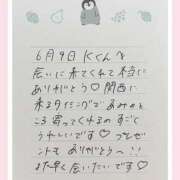 6月9日 Kくんへ
会いに来てくれて本当に
ありがとう♡関西に
来るタイミングであみのと
ころ寄ってくれるのすごく
うれしいです♡プレゼ
ントもありがとうっ!!
また早く会いたいです♡